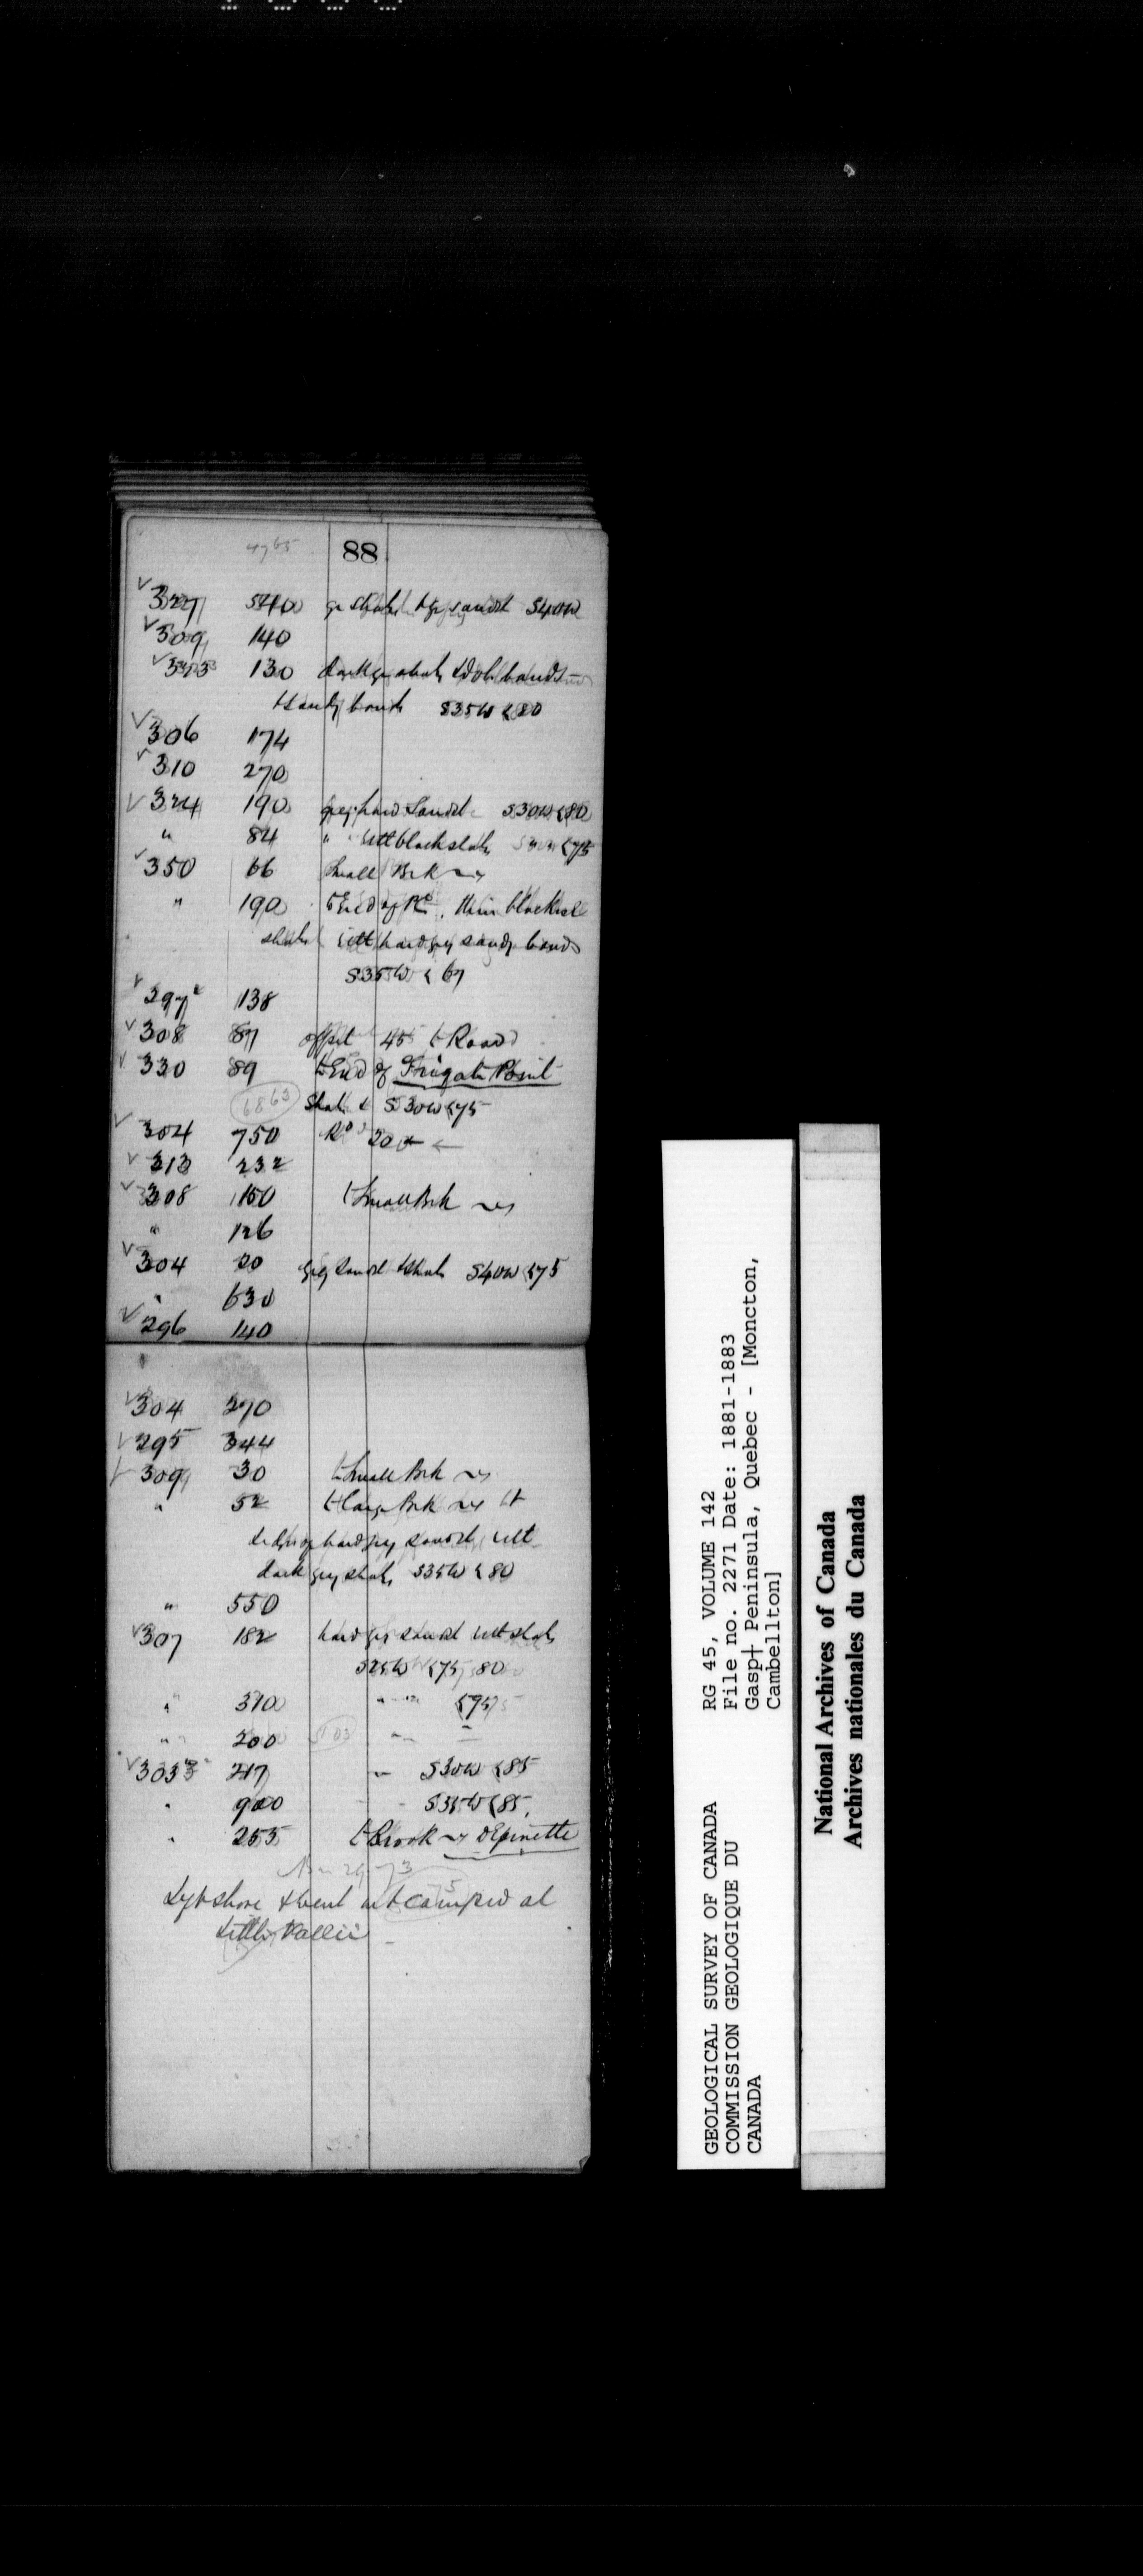 4765 88
327 540 gr shales & gr sandst S40W
309 140
323 130 dark gr shale & dol bands
& sandy bands S35W <80
306 174
310 270
324 190 grey hard sandst S30W <80
" 84 " with black shale <75
350 66 Small Brk
" 190 to End of Rd. thin blackish
shales with hard grey sandy bands
S35W < 67
297 138
308 87 offset 45 to Road
330 89 to End of Frigate Point
6863 Shale & S30W <75
304 750 Rd 20 ←
313 232
308 150 to Small Brk
" 126
304 20 grey sandst & shale S40W <75
" 630
296 140
304 270
295 344
309 30 to Small Brk
" 52 to Large Brk
Ledges of hard grey sandst with
dark grey shale S35W < 80
" 550
307 182 hard gr sandst with shale
S25W <75, 80
" 310 " " <75
" 200
303 217 " S30W <85
" 900 " S35W <85
" 255 to Brook d'Epinette
Left shore & went and camped at
Little Vallee
GEOLOGICAL SURVEY OF CANADA
COMMISSION GEOLOGIQUE DU
CANADA
RG 45, VOLUME 142
File no. 2271 Date: 1881-1883
Gasp† Peninsula, Quebec - [Moncton,
Cambellton]
National Archives of Canada
Archives nationales du Canada